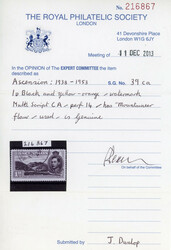 No. 216867
THE ROYAL PHILATELIC SOCIETY
LONDON
41 Devonshire Place
London W1G 6JY
Meeting of 11 DEC 2013
In the OPINION of THE EXPERT COMMITTEE the item
described as
Ascension : 1938 - 1953 S.G. No. 39ca
1d Black and yellow-orange - watermark
Multi Script CA - part 14 - has "Mountaineer
flaw" - used - is Genuine
216867
On behalf of the Committee
Submitted by J. Dunlop